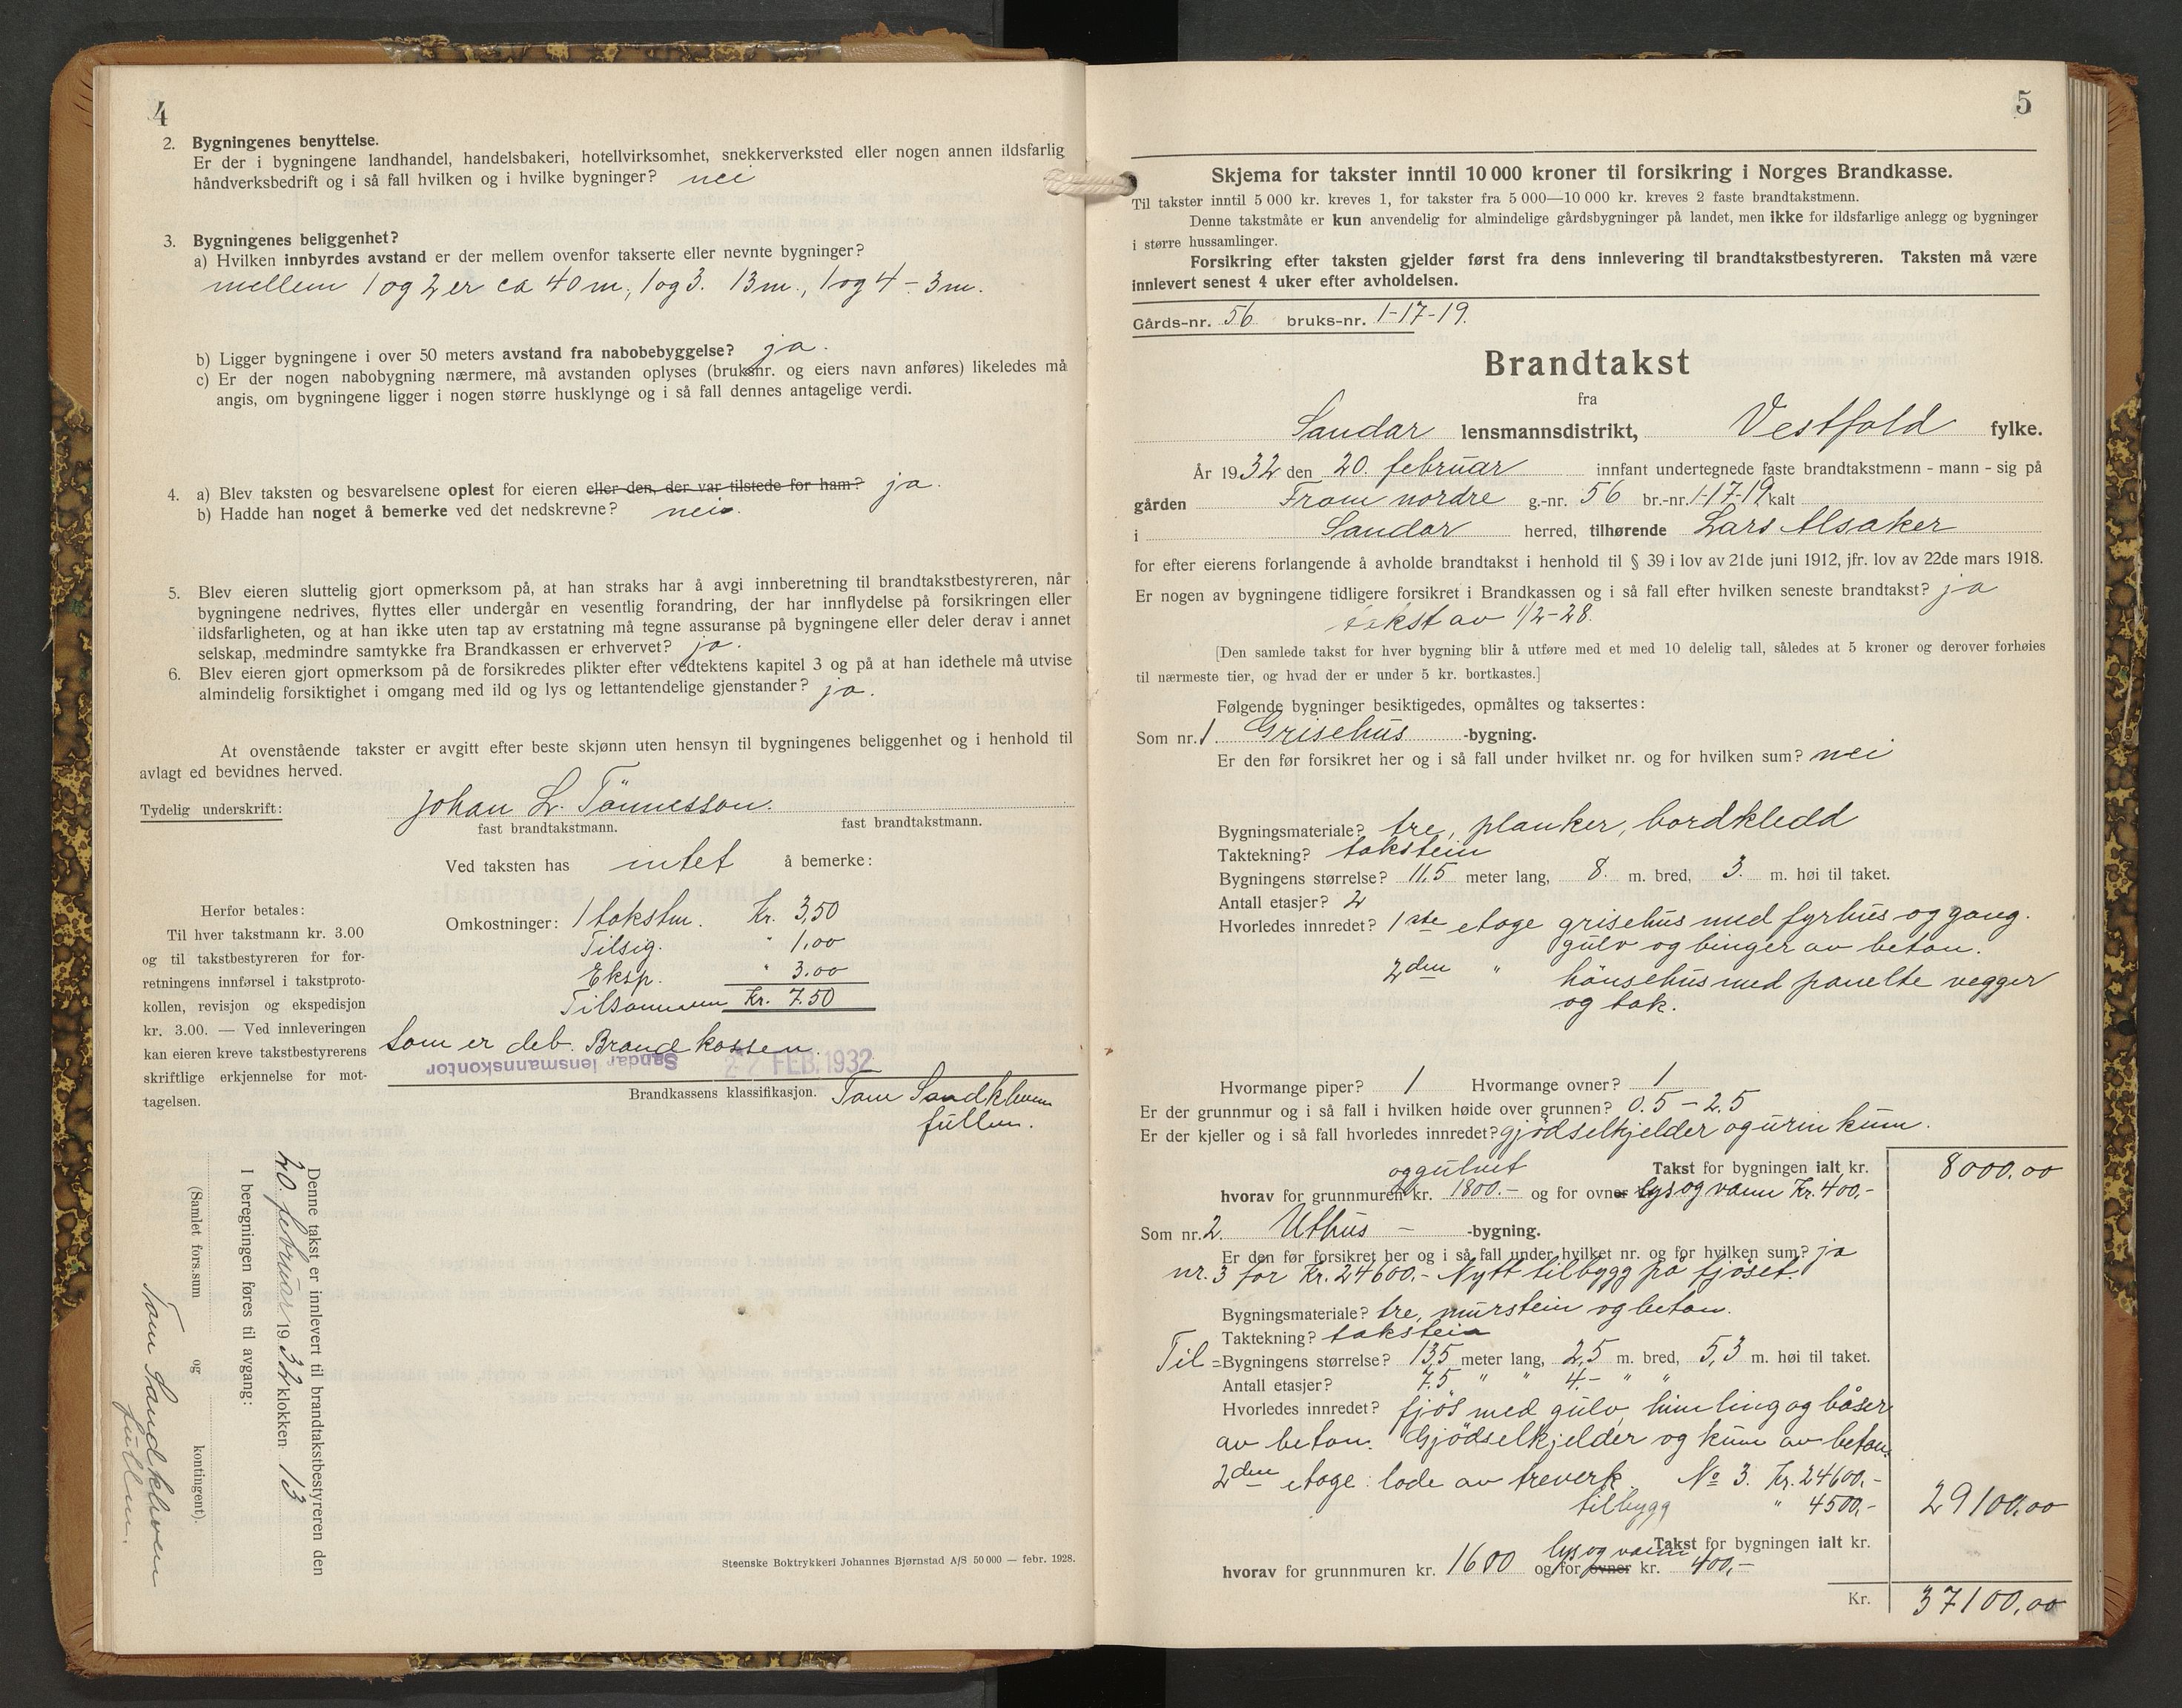 4
2. Bygningenes benyttelse.
Er der i bygningene landhandel, handelsbakeri, hotellvirksomhet, snekkerverksted eller nogen annen ildsfarlig
håndverksbedrift og i så fall hvilken og i hvilke bygninger? nei
3. Bygningenes beliggenhet?
a) Hvilken innbyrdes avstand er der mellem ovenfor takserte eller nevnte bygninger?
mellem 1 og 2 er ca 40 m, 1 og 3. 13 m., 1 og 4 - 3 m.
b) Ligger bygningene i over 50 meters avstand fra nabobebyggelse? ja.
c) Er der nogen nabobygning nærmere, må avstanden oplyses (bruksnr. og eiers navn anføres) likeledes må
angis, om bygningene ligger i nogen større husklynge og i så fall dennes antagelige verdi.
4. a) Blev taksten og besvarelsene oplest for eieren eller den, der var tilstede for ham? ja.
b) Hadde han noget å bemerke ved det nedskrevne? nei.
5. Blev eieren sluttelig gjort opmerksom på, at han straks har å avgi innberetning til brandtakstbestyreren, når
bygningene nedrives, flyttes eller undergår en vesentlig forandring, der har innflydelse på forsikringen eller
ildsfarligheten, og at han ikke uten tap av erstatning må tegne assuranse på bygningene eller deler derav i annet
selskap, medmindre samtykke fra Brandkassen er erhvervet? ja.
6. Blev eieren gjort opmerksom på de forsikredes plikter efter vedtektens kapitel 3 og på at han idethele må utvise
almindelig forsiktighet i omgang med ild og lys og lettantendelige gjenstander? ja.
At ovenstående takster er avgitt efter beste skjønn uten hensyn til bygningenes beliggenhet og i henhold til
avlagt ed bevidnes herved.
Tydelig underskrift: Johan L. Tönnesson.
fast brandtakstmann. fast brandtakstmann.
Ved taksten has intet å bemerke:
Herfor betales:
Til hver takstmann kr. 3.00
og til takstbestyreren for for-
retningens innførsel i takstproto-
kollen, revisjon og ekspedisjon
kr. 3.00. — Ved innleveringen
kan eieren kreve takstbestyrerens
skriftlige erkjennelse for mot-
tagelsen.
Omkostninger: 1 takstm. Kr. 3,50
Tilsig. " 1,00
Eksp. " 3.00
Tilsammen Kr. 7.50
som er deb. Brandkassen.
Sandar lensmannskontor
22 FEB. 1932
Brandkassens klassifikasjon. Tom Sandkleven
fullm.
Denne takst er innlevert til brandtakstbestyreren den
20. februar 1932 klokken 13
I beregningen føres til avgang:
(Samlet fors.sum og kontingent).
Tom Sandkleven
fullm.
Steenske Boktrykkeri Johannes Bjørnstad A/S 50 000 — febr. 1928.
5
Skjema for takster inntil 10 000 kroner til forsikring i Norges Brandkasse.
Til takster inntil 5 000 kr. kreves 1, for takster fra 5 000—10 000 kr. kreves 2 faste brandtakstmenn.
Denne takstmåte er kun anvendelig for almindelige gårdsbygninger på landet, men ikke for ildsfarlige anlegg og bygninger
i større hussamlinger.
Forsikring efter taksten gjelder først fra dens innlevering til brandtakstbestyreren. Taksten må være
innlevert senest 4 uker efter avholdelsen.
Gårds-nr. 56 bruks-nr. 1-17-19.
Brandtakst
fra
Sandar lensmannsdistrikt, Vestfold fylke.
År 1932 den 20. februar innfant undertegnede faste brandtakstmenn - mann - sig på
gården Fram nordre g.-nr. 56 br.-nr. 1-17-19 kalt
i Sandar herred, tilhørende Lars Alsaker
for efter eierens forlangende å avholde brandtakst i henhold til § 39 i lov av 21de juni 1912, jfr. lov av 22de mars 1918.
Er nogen av bygningene tidligere forsikret i Brandkassen og i så fall efter hvilken seneste brandtakst? ja
takst av 1/2-28.
[Den samlede takst for hver bygning blir å utføre med et med 10 delelig tall, således at 5 kroner og derover forhøies
til nærmeste tier, og hvad der er under 5 kr. bortkastes.]
Følgende bygninger besiktigedes, opmåltes og taksertes:
Som nr. 1. Grisehus -bygning.
Er den før forsikret her og i så fall under hvilket nr. og for hvilken sum? nei
Bygningsmateriale? tre, planker, bordkledd
Taktekning? takstein
Bygningens størrelse? 11,5 meter lang, 8. m. bred, 3. m. høi til taket.
Antall etasjer? 2
Hvorledes innredet? 1ste etage grisehus med fyrhus og gang.
gulv og binger av beton.
2den " hönsehus med panelte vegger
og tak.
Hvormange piper? 1 Hvormange ovner? 1
Er der grunnmur og i så fall i hvilken høide over grunnen? 0.5 - 2,5
Er der kjeller og i så fall hvorledes innredet? gjödselkjelder og urin kum.
Takst for bygningen ialt kr. 8000.00
og gulvet
hvorav for grunnmuren kr. 1800.- og for ovner lys og vann Kr. 400,-
Som nr. 2. Uthus - -bygning.
Er den før forsikret her og i så fall under hvilket nr. og for hvilken sum? ja
nr. 3 for Kr. 24600.- Nytt tilbygg på fjöset.
Bygningsmateriale? tre, murstein og beton.
Taktekning? takstein
Til = Bygningens størrelse? 13,5 meter lang, 2,5 m. bred, 5,3 m. høi til taket.
Antall etasjer? 7.5 " " 4.- " "
Hvorledes innredet? fjös med gulv, himling og båser
av beton. Gjödselkjelder og kum av beton.
2den etage: lade av treverk No 3. Kr. 24600.-
tilbygg " 4500,- 29100,00
lys og vann Takst for bygningen ialt kr.
hvorav for grunnmuren kr. 1600 og for ovner kr. 400,-
Kr. 37100,00